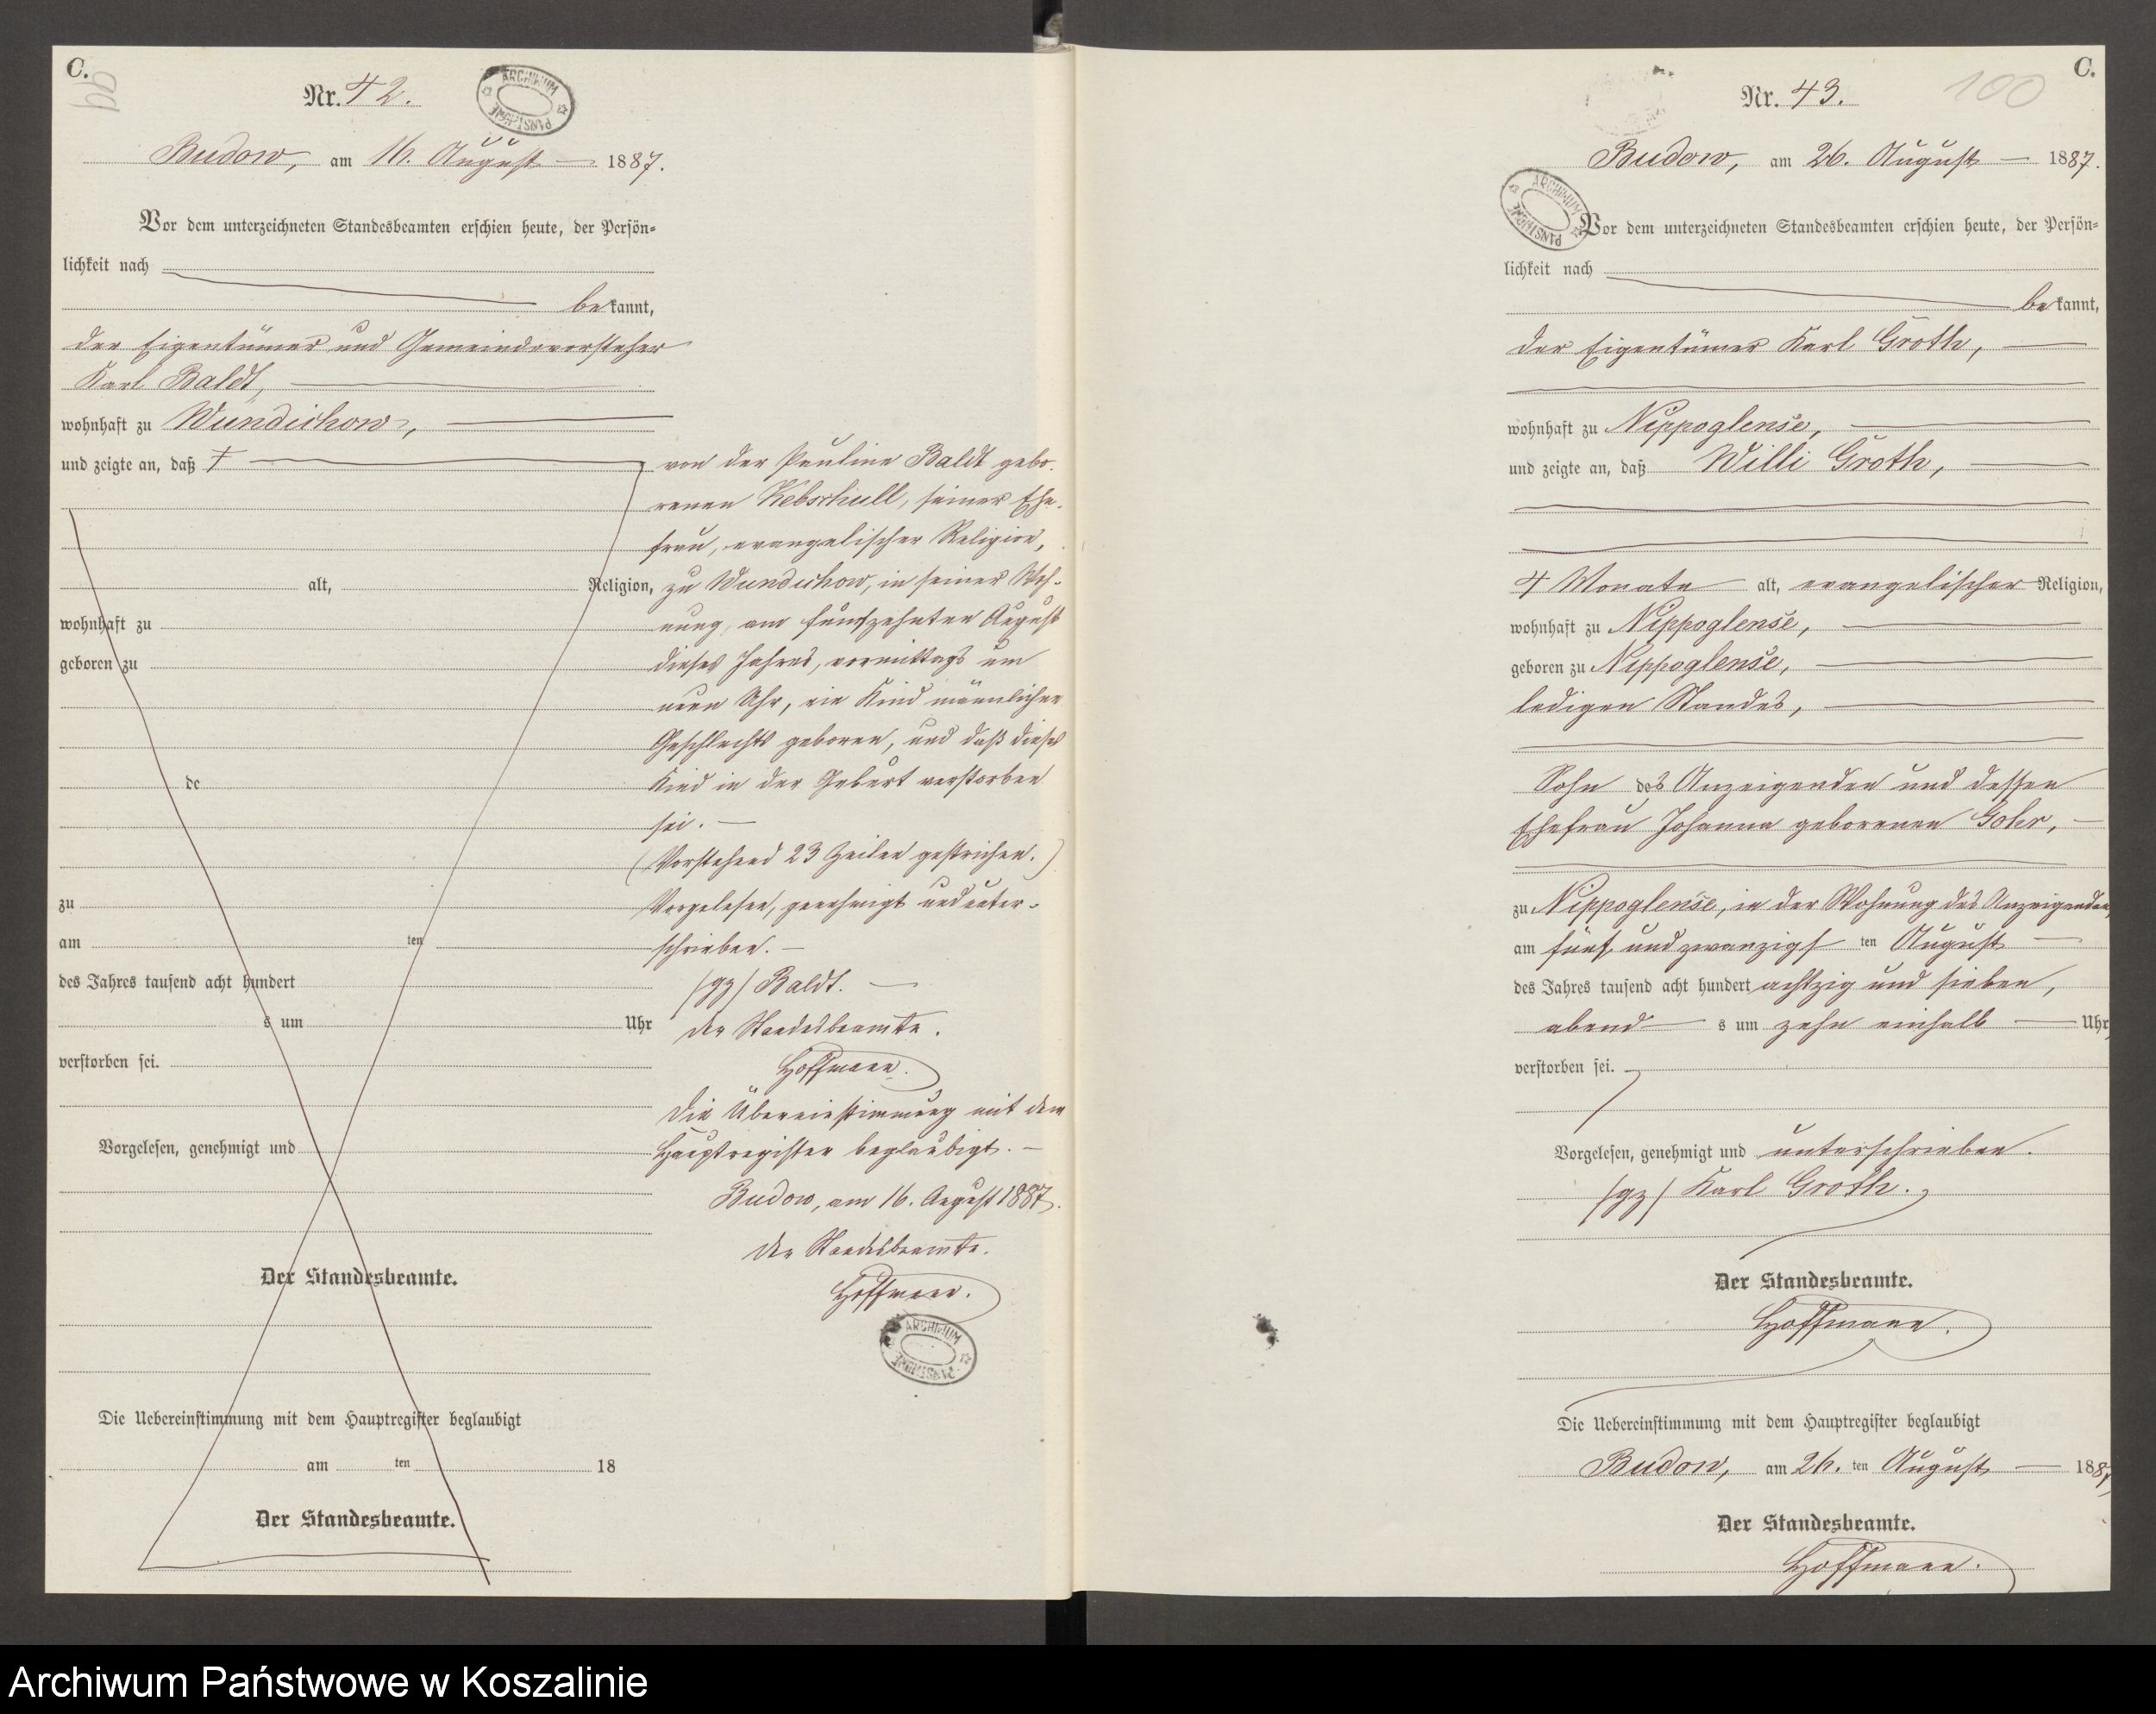 C.
99
Nr. 42.
ARCHIWUM PAŃSTWOWE
Budow, am 16. August 1887.
Vor dem unterzeichneten Standesbeamten erschien heute, der Persön=
lichkeit nach
bekannt,
der Eigentümer und Gemeindevorsteher
Karl Baldt,
wohnhaft zu Wundichow,
und zeigte an, daß
alt, Religion,
wohnhaft zu
geboren zu
de
zu
am ten
des Jahres tausend acht hundert
s um Uhr
verstorben sei.
Vorgelesen, genehmigt und
Der Standesbeamte.
Die Uebereinstimmung mit dem Hauptregister beglaubigt
am ten 18
Der Standesbeamte.
von der Pauline Baldt gebo-
renen Kebschull, seiner Ehe-
frau, evangelischer Religion,
zu Wundichow, in seiner Woh-
nung, am fünfzehnten August
dieses Jahres, vormittags um
neun Uhr, ein Kind männlichen
Geschlechts geboren, und daß dieses
Kind in der Geburt verstorben
sei. —
(Vorstehend 23 Zeilen gestrichen.)
Vorgelesen, genehmigt und unter-
schrieben. —
/gz/ Baldt. —
Der Standesbeamte.
Hoffmann.
Die Übereinstimmung mit dem
Hauptregister beglaubigt. —
Budow, am 16. August 1887.
Der Standesbeamte.
Hoffmann.
ARCHIWUM PAŃSTWOWE
C.
100
Nr. 43.
Budow, am 26. August — 1887.
ARCHIWUM PAŃSTWOWE
Vor dem unterzeichneten Standesbeamten erschien heute, der Persön=
lichkeit nach
bekannt,
der Eigentümer Karl Groth,
wohnhaft zu Nippoglense,
und zeigte an, daß Willi Groth,
4 Monate alt, evangelischer Religion,
wohnhaft zu Nippoglense,
geboren zu Nippoglense,
ledigen Standes,
Sohn des Anzeigenden und dessen
Ehefrau Johanna geborenen Gohr, —
zu Nippoglense, in der Wohnung des Anzeigenden,
am fünf und zwanzigsten August
des Jahres tausend acht hundert achtzig und sieben,
abends um zehn einhalb Uhr,
verstorben sei.
Vorgelesen, genehmigt und unterschrieben.
/gz/ Karl Groth.
Der Standesbeamte.
Hoffmann.
Die Uebereinstimmung mit dem Hauptregister beglaubigt
Budow, am 26. ten August — 1887
Der Standesbeamte.
Hoffmann.
Archiwum Państwowe w Koszalinie